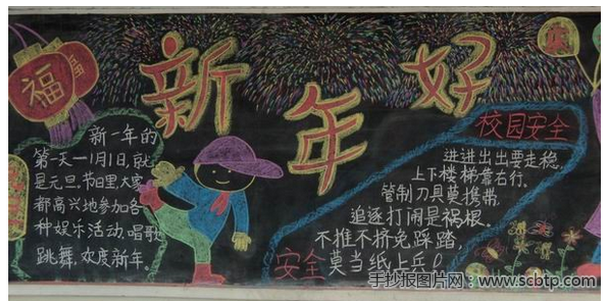 福
福
新年好
新一年的
第一天—1月1日,就
是元旦.节日里大家
都高兴地参加各
种娱乐活动,唱歌
跳舞,欢度新年。
校园安全
进进出出要走稳,
上下楼梯靠右行。
管制刀具莫携带,
追逐打闹是祸根。
不推不挤免踩踏,
安全莫当纸上兵!
手抄报图片网:www.scbtp.com